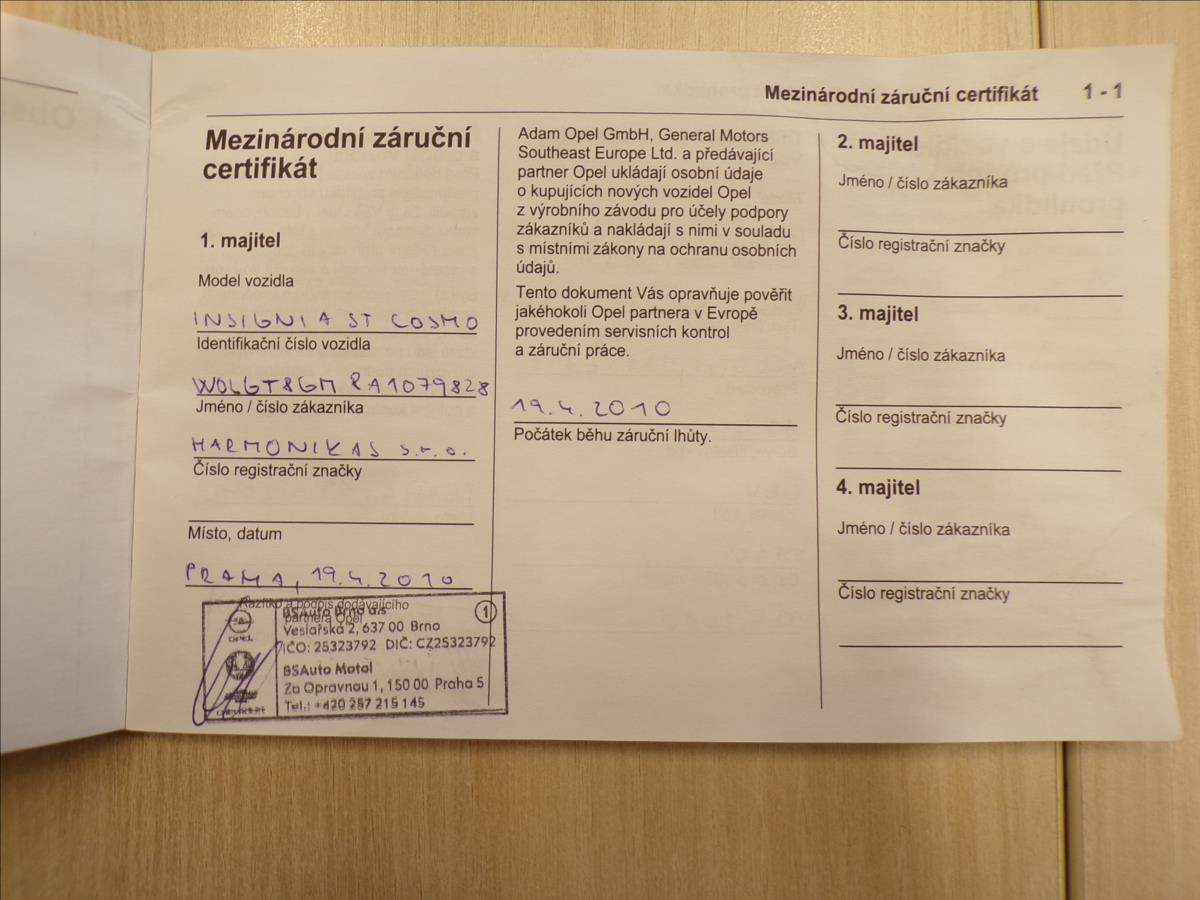 Mezinárodní záruční certifikát 1 - 1
Mezinárodní záruční
certifikát
1. majitel
Model vozidla
INSIGNIA ST COSMO
Identifikační číslo vozidla
W0LGT8GM8A1079828
Jméno / číslo zákazníka
HARMONIKAS s.r.o.
Číslo registrační značky
Místo, datum
PRAHA, 19.4.2010
Razítko a podpis dodávajícího
partnera Opel
BSAuto Brno a.s
Veslařská 2, 637 00 Brno
IČO: 25323792 DIČ: CZ25323792
BSAuto Motol
Za Opravnou 1, 150 00 Praha 5
Tel.: +420 257 215 145
1
OPEL
CHEVROLET
Adam Opel GmbH, General Motors
Southeast Europe Ltd. a předávající
partner Opel ukládají osobní údaje
o kupujících nových vozidel Opel
z výrobního závodu pro účely podpory
zákazníků a nakládají s nimi v souladu
s místními zákony na ochranu osobních
údajů.
Tento dokument Vás opravňuje pověřit
jakéhokoli Opel partnera v Evropě
provedením servisních kontrol
a záruční práce.
19.4.2010
Počátek běhu záruční lhůty.
2. majitel
Jméno / číslo zákazníka
Číslo registrační značky
3. majitel
Jméno / číslo zákazníka
Číslo registrační značky
4. majitel
Jméno / číslo zákazníka
Číslo registrační značky